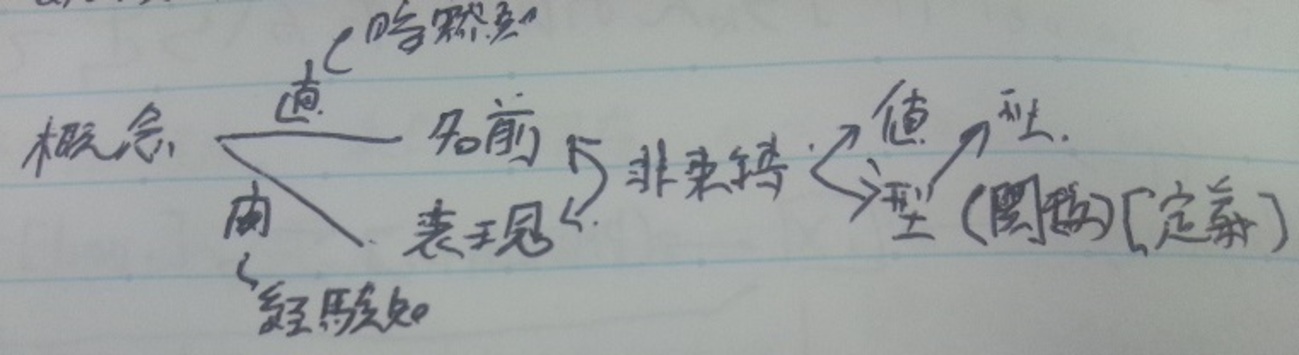 暗黙知
直
概念 名前 値 型
表現 非束縛 型 (関数) [定義]
由
経験知